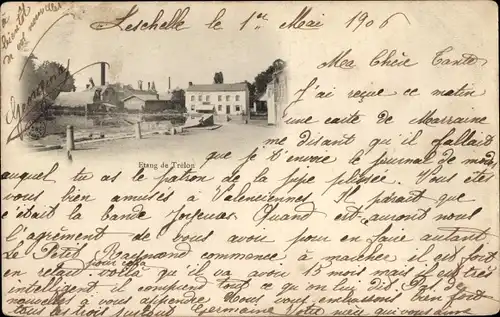 Leschelle le 1er Mai 1906
Ma Chère Tante
J'ai reçue ce matin
une carte de Marraine
me disant qu'il fallait
que je t'envoie le journal de mode
Etang de Trélon
auquel tu as le patron de la jupe plissée. Vous êtes
vous bien amusés à Valenciennes. Il parait que
c'était la bande Joyeuse. Quand est-ce auront nous
l'agrément de vous avoir pour en faire autant
Le Petit Raymond commence à marcher il est fort
en retard voilà qu'il va avoir 15 mois mais il est très
pour cela
intelligent il comprend tout ce qu'on lui dit. Pas de
nouvelles à vous apprendre. Nous vous embrassons bien fort
tous les trois Germaine votre nièce qui vous aime
à
bientôt
de vos
nouvelles
Germaine